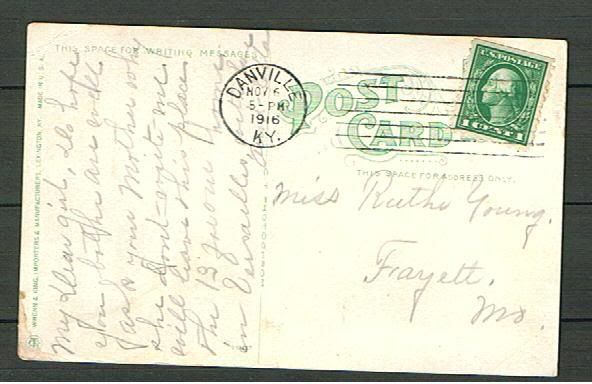 THIS SPACE FOR WRITING MESSAGES
POST
CARD
THIS SPACE FOR ADDRESS ONLY.
DANVILLE
NOV 6
5-PM
1916
KY.
U.S. POSTAGE
1 CENT 1
Miss Ruthe Young.
Frayett.
Mo.
My dear girl, do hope
you both are well
ask your Mother why
she dont write me
will leave this place
the 13 for our home
in Versailles,
WRENN & KING, IMPORTERS & MANUFACTURERS, LEXINGTON, KY. MADE IN U.S.A.